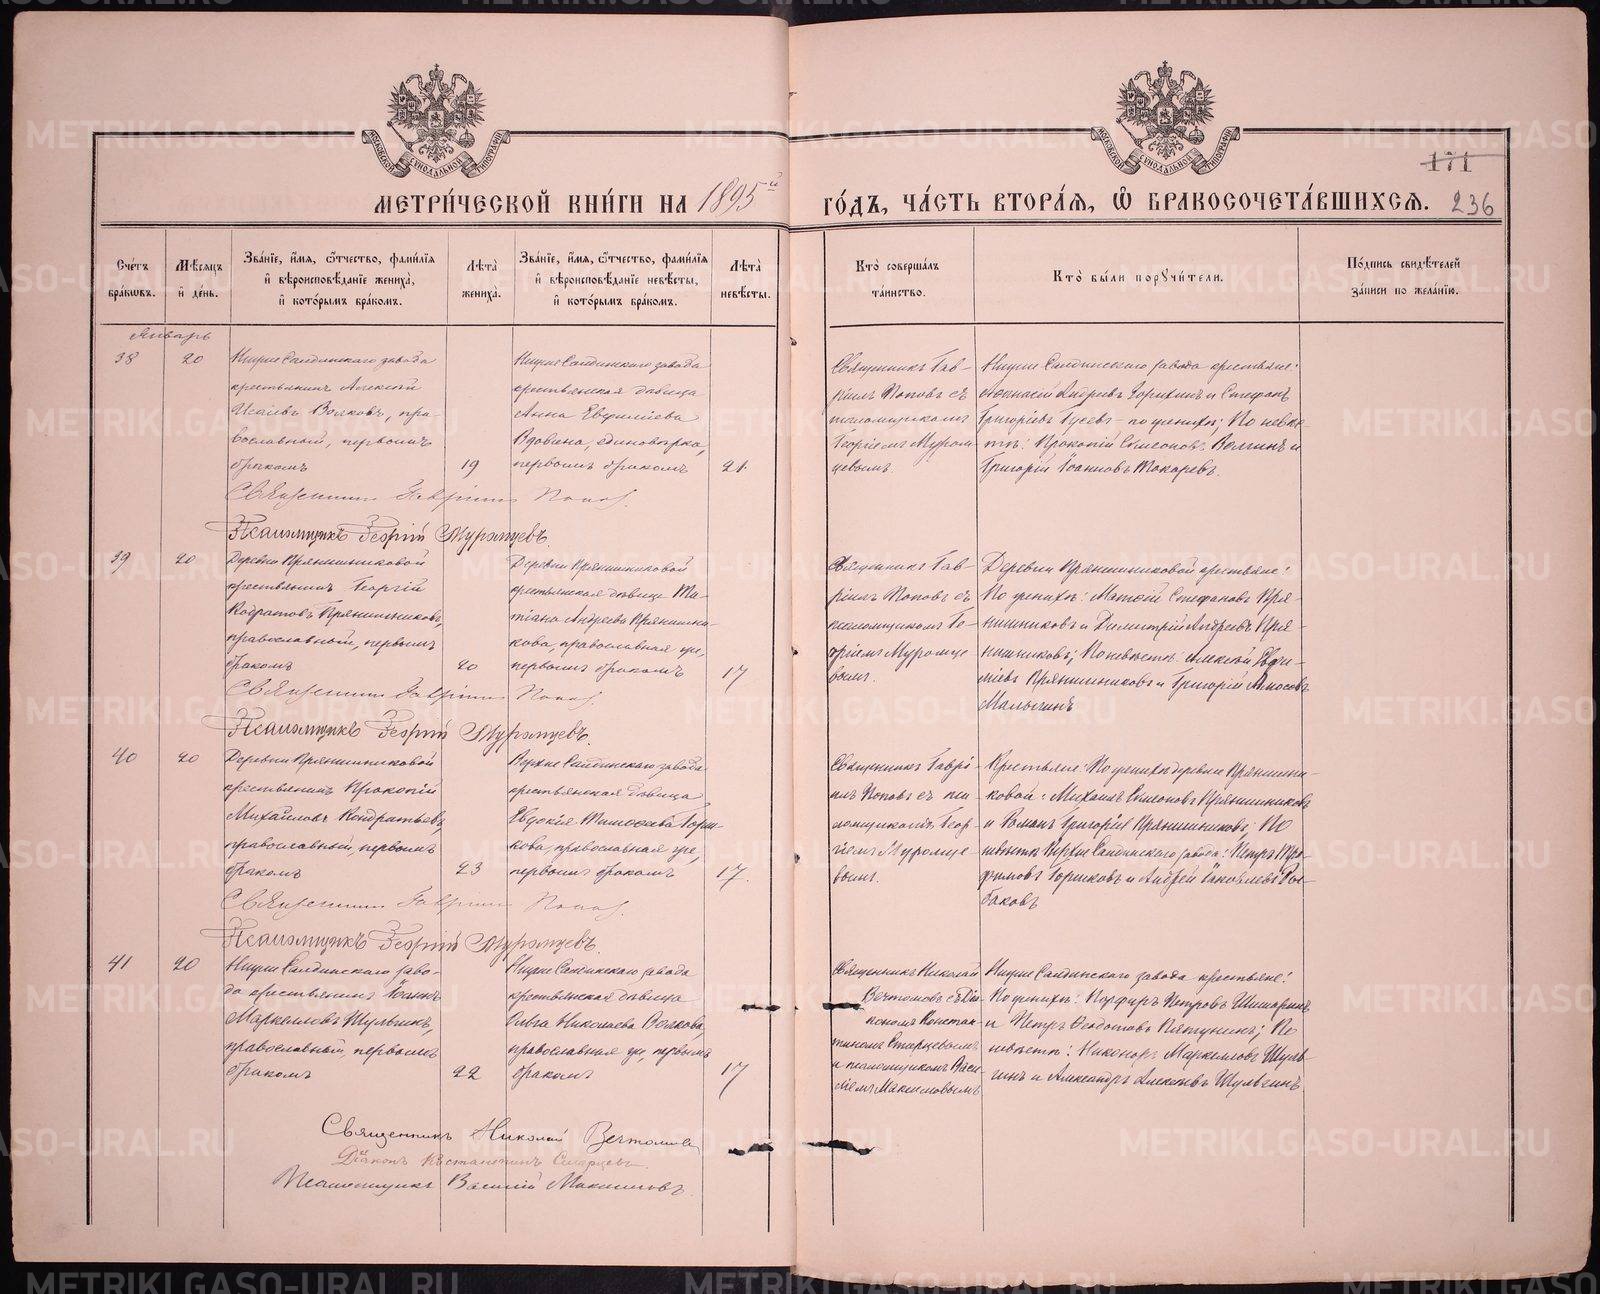 171
МЕТРИ́ЧЕСКОЙ КНИ́ГИ НА 1895й
ГО́ДЪ, ЧА́СТЬ ВТОРА́Я, Ѽ БРАКОСОЧЕТА́ВШИХСЯ. 236
Сче́тъ бра́кѡвъ.
Мѣ́сяцъ и де́нь.
Зва́нїе, и́мя, ѻ́тчество, фами́лїя и вѣроисповѣ́данїе жениха̀, и кото́рымъ бра́комъ.
Лѣ́та жениха.
Зва́нїе, и́мя, ѻ́тчество, фами́лїя и вѣроисповѣ́данїе невѣ́сты, и кото́рымъ бра́комъ.
Лѣ́та невѣ́сты.
Кто̀ соверша́лъ та́инство.
Кто̀ бы́ли порꙋчи́тели.
По́дпись свидѣ́телей за́писи по жела́нїю.
Январь
38
20
Нижне Салдинскаго завода
крестьянинъ Алексѣй
Исаіевъ Волковъ, пра-
вославный, первымъ
бракомъ
19
Нижне Салдинскаго завода
крестьянская дѣвица
Анна
Вдовина, единовѣрка,
первымъ бракомъ
21.
Священникъ Гав-
ріилъ Поповъ съ
псаломщикомъ
Георгіемъ Муром-
цевымъ.
Нижне Салдинскаго завода крестьяне:
Аѳанасій Андреевъ Зорихинъ и Стефанъ
Григоріевъ Гусевъ - по женихѣ; По невѣс-
тѣ: Прокопій Симеоновъ Волгинъ и
Григорій Іоанновъ Токаревъ.
Священникъ Гавріилъ Поповъ.
Псаломщикъ Георгій Муромцевъ.
39
20
Деревни Прянишниковой
крестьянинъ Георгій
Кодратовъ Прянишниковъ,
православный, первымъ
бракомъ
20
Деревни Прянишниковой
крестьянская дѣвица Та-
тіана Андреева Прянишни-
кова, православная же,
первымъ бракомъ
17
Священникъ Гав-
ріилъ Поповъ съ
псаломщикомъ Ге-
оргіемъ Муромце-
вымъ.
Деревни Прянишниковой крестьяне:
По женихѣ: Матѳей Стефановъ Пря-
нишниковъ и Димитрій Андреевъ Пря-
нишниковъ; По невѣстѣ: Алексѣй Евѳи-
міевъ Прянишниковъ и Григорій Амосовъ
Малыгинъ
Священникъ Гавріилъ Поповъ.
Псаломщикъ Георгій Муромцевъ.
40
20
Деревни Прянишниковой
крестьянинъ Прокопій
Михайловъ Кондратьевъ,
православный, первымъ
бракомъ
23
Верхне Салдинскаго завода
крестьянская дѣвица
Евдокія Тимоѳеева Горш-
кова, православная же,
первымъ бракомъ
17.
Священникъ Гаврі-
илъ Поповъ съ пса-
ломщикомъ Геор-
гіемъ Муромце-
вымъ.
Крестьяне: По женихѣ деревни Прянишни-
ковой: Михаилъ Симеоновъ Прянишниковъ
и Романъ Григоріевъ Прянишниковъ; По
невѣстѣ Верхне Салдинскаго завода: Петръ Тро-
фимовъ Горшковъ и Андрей Іаковлевъ Ры-
баковъ
Священникъ Гавріилъ Поповъ.
Псаломщикъ Георгій Муромцевъ.
41
20
Нижне Салдинскаго заво-
да крестьянинъ Іоаннъ
Маркелловъ Шульгинъ,
православный, первымъ
бракомъ
22
Нижне Салдинскаго завода
крестьянская дѣвица
Ольга Николаева Волкова,
православная же, первымъ
бракомъ
17
Священникъ Николай
Вечтомовъ съ Діа-
кономъ Констан-
тиномъ Старцевымъ
и псаломщикомъ Васи-
ліемъ Максимовымъ
Нижне Салдинскаго завода крестьяне:
По женихѣ: Порфирій Петровъ Шиморинъ
и Петръ Ѳеодотовъ Пятунинъ; По
невѣстѣ: Никоноръ Маркелловъ Шуль-
гинъ и Александръ Алексѣевъ Шульгинъ
Священникъ Николай Вечтомовъ
Діаконъ Константинъ Старцевъ.
Псаломщикъ Василій Максимовъ.
METRIKI.GASO-URAL.RU